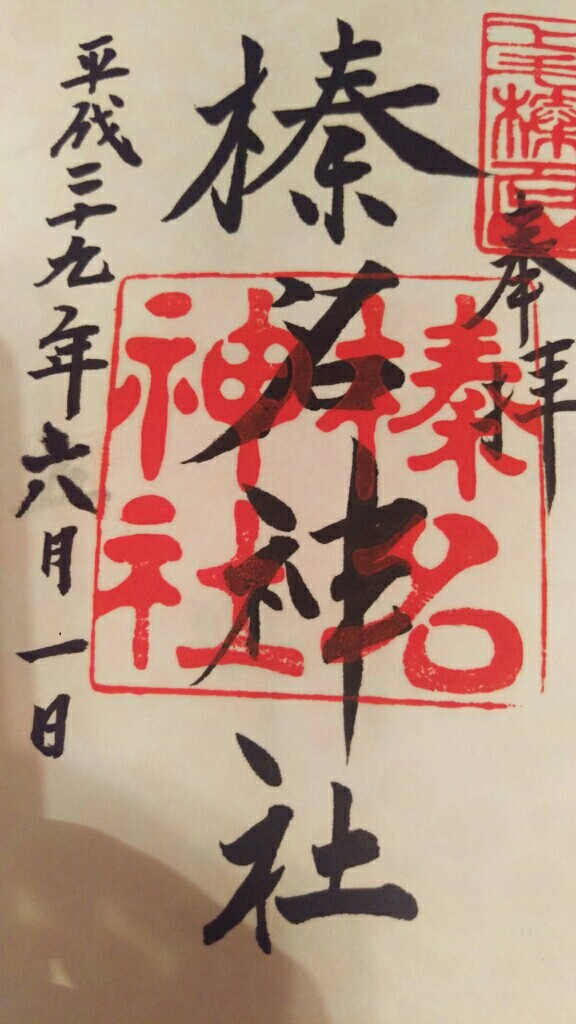 奉拝
上毛榛名
榛名神社
榛名
神社
平成二十九年六月一日